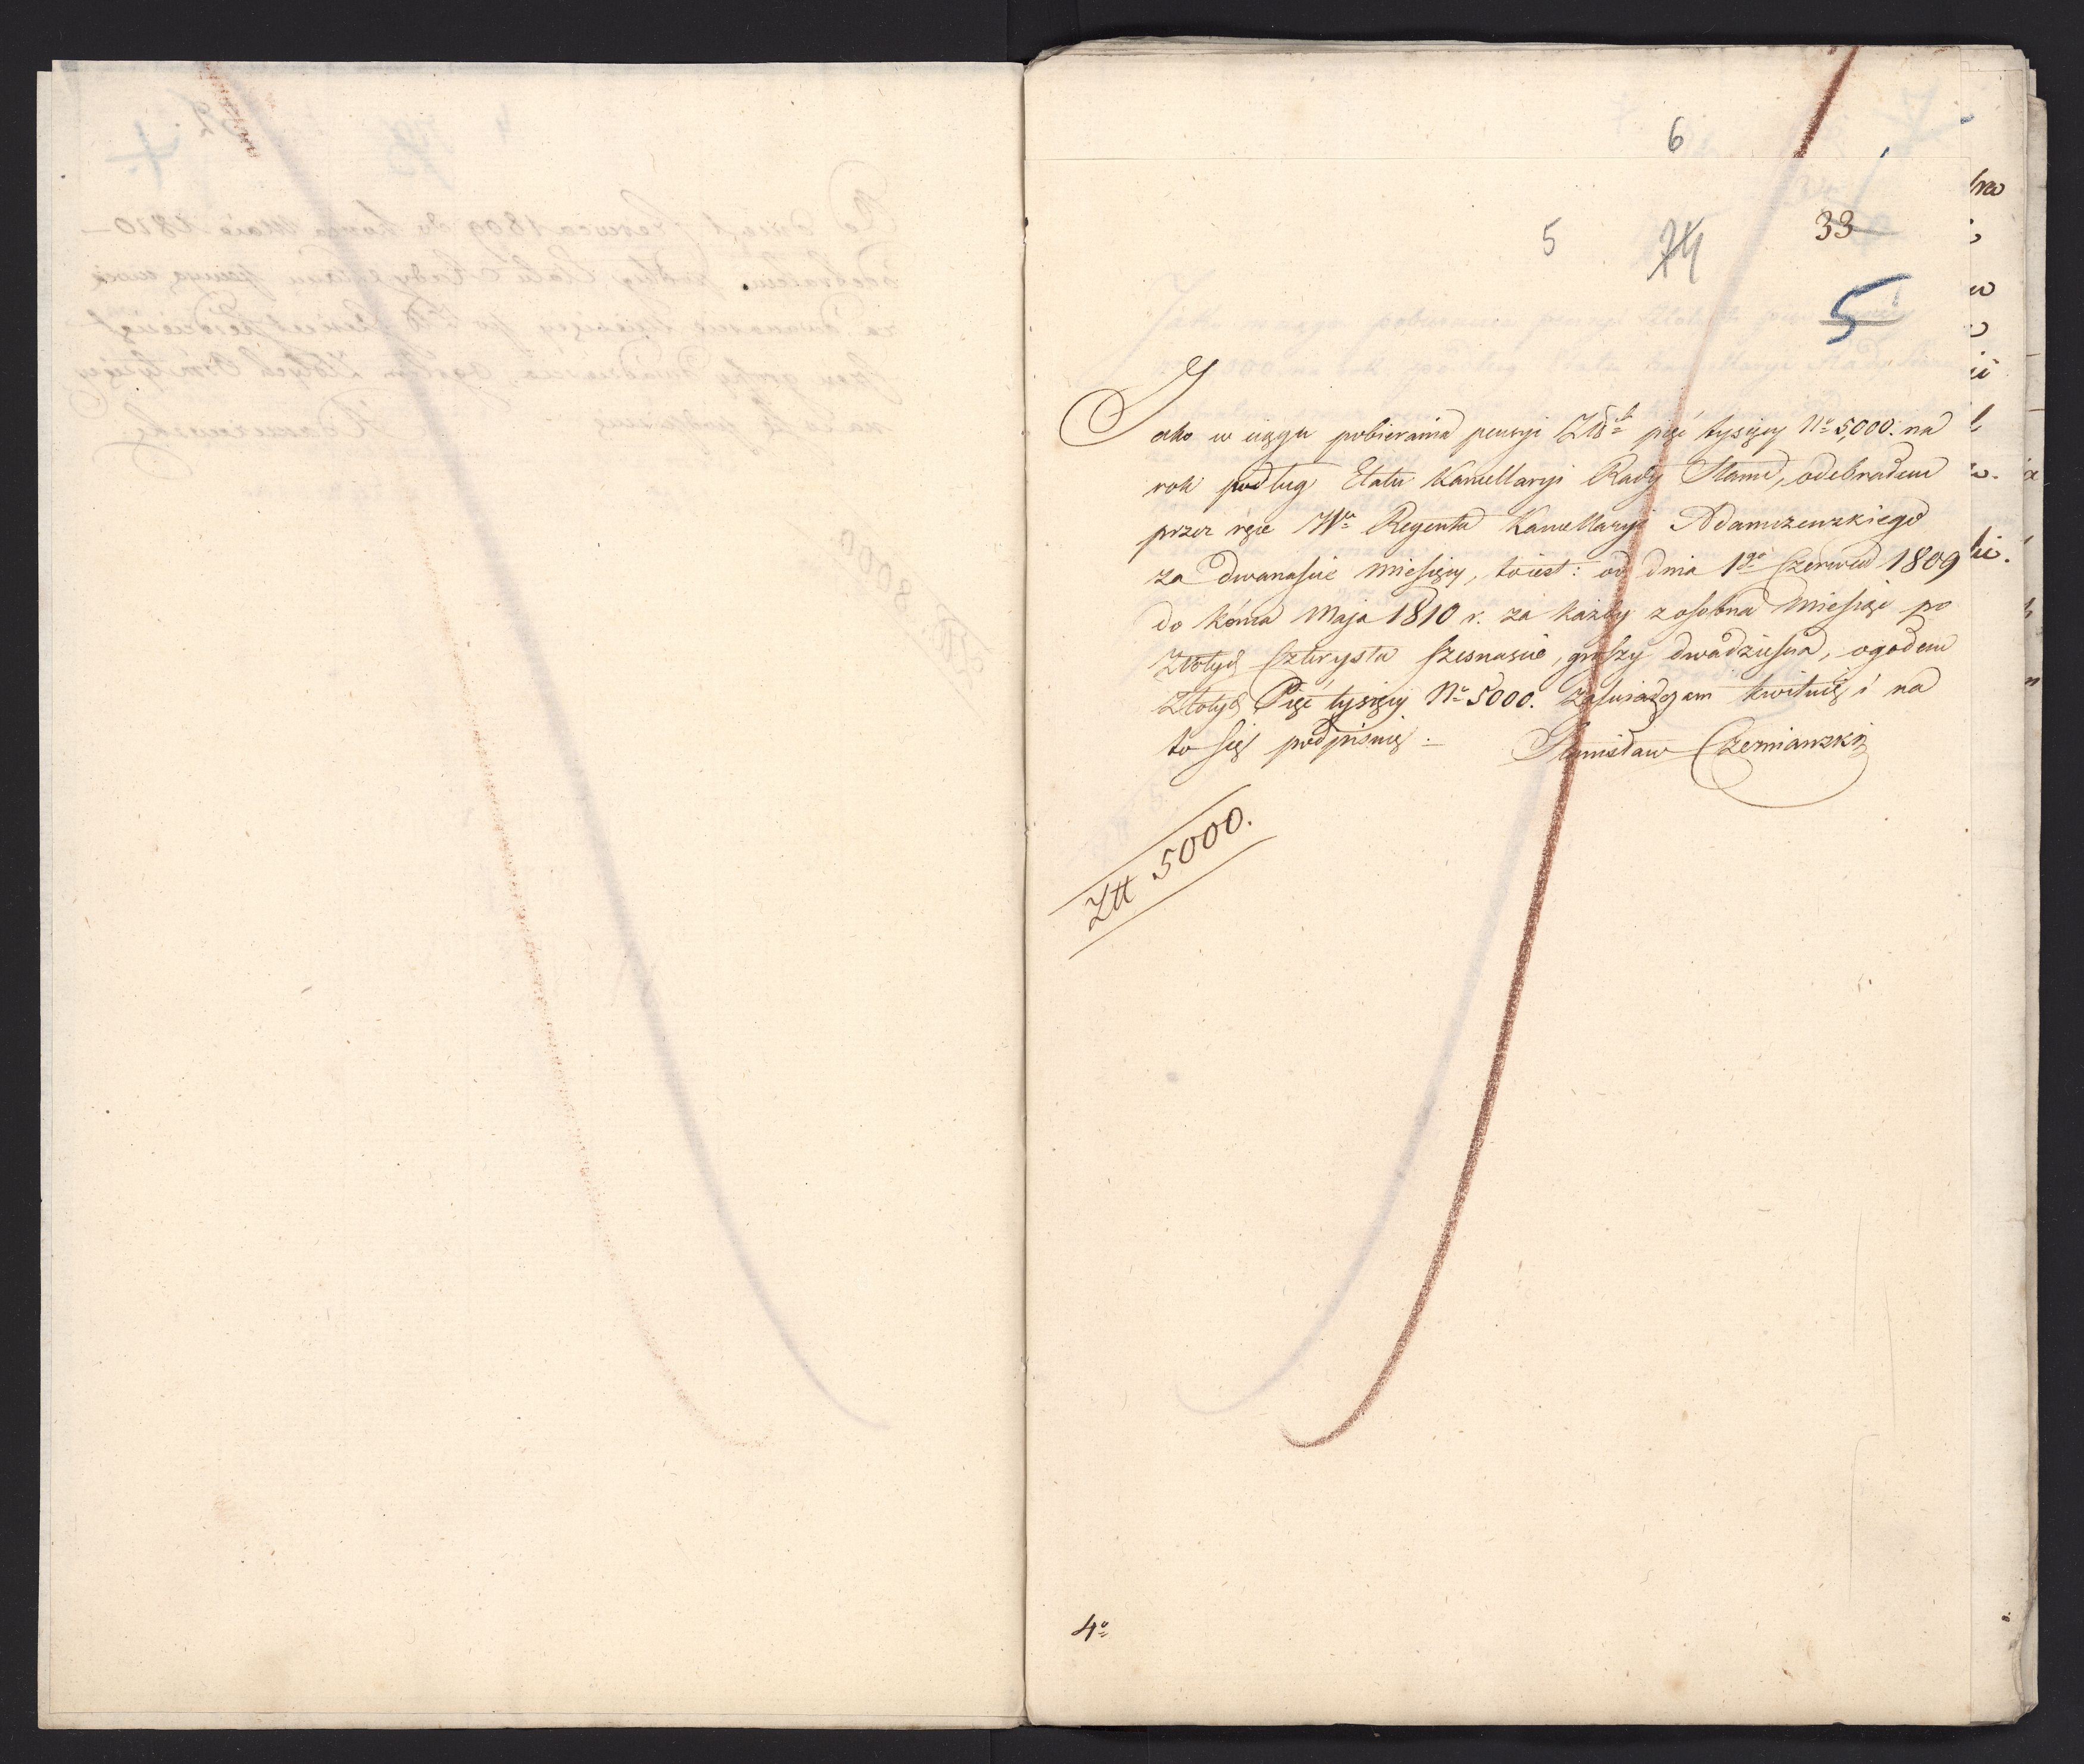 6
5 74 33
5
Jako w ciągu pobierania pensyi Złtch pięć tysięcy No 5,000. na
rok podług Etatu Kancellaryi Rady Stanu, odebrałem
przez ręce Wo Regenta Kancellaryi Adamczewskiego
za dwanaście Miesięcy, toiest: od dnia 1go Czerwca 1809
do końca Maja 1810 r. za każdy zosobna Miesiąc po
Złotych Czterysta szesnaście, groszy dwadzieścia, ogołem
Złotych Pięć tysięcy No 5000. zaświadczam kwituię i na
to się podpisuię.
Stanisław Czerniawski
Ztt 5000.
4o